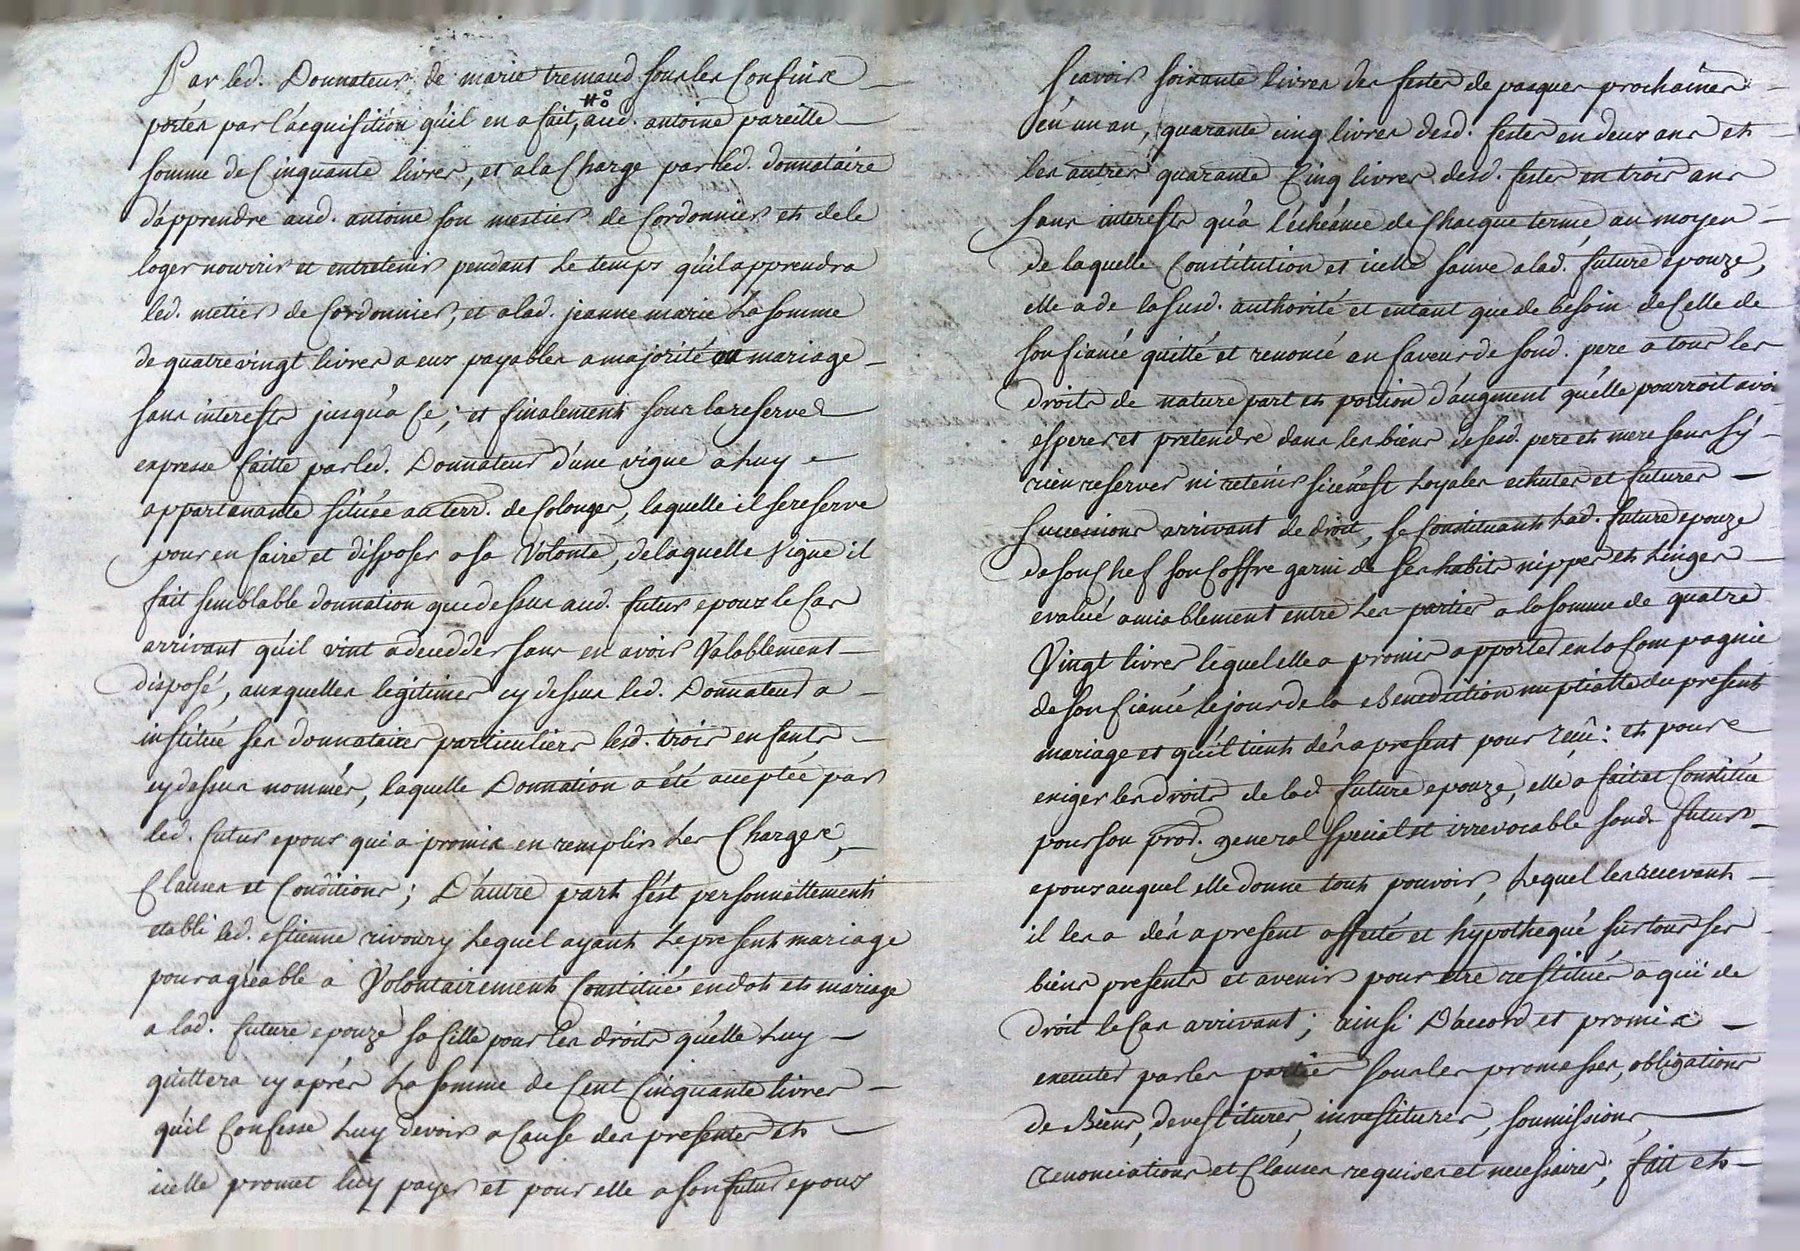 Par led. Donnateur de marie tremaud sous les Confins
portés par l'acquisition qu'il en a fait, aud. antoine pareille
somme de Cinquante livres, et a la Charge par led. donnataire
d'apprendre aud. antoine son mestier de Cordonnier et de le
loger nourrir et entretenir pendant le temps qu'il apprendra
led. metier de Cordonnier, et a lad. jeanne marie La somme
de quatre vingt livres a eux payables a majorité ou mariage
sans interests jusqu'a Ce; et finalement sous la reserve
expresse faitte par led. Donnateur d'une vigne a Luy
appartenante située au terr. de Colonges, laquelle il se reserve
pour en faire et disposer a sa Volonté, de laquelle vigne il
fait semblable donnation que dessus aud. futur epoux le Cas
arrivant qu'il vint a decedder sans en avoir Valablement
disposé, auxquelles legitimes cy dessus led. Donnateur a
institué ses donnataires particuliers lesd. trois enfants
cy dessus nommés, laquelle Donnation a été acceptée par
led. futur epoux qui a promis en remplir Les Charges,
Clauses et Conditions; D'autre part s'est personnellement
etabli led. estienne rivoury Lequel ayant Le present mariage
pour agreable a Volontairement Constitué en dot et mariage
a lad. future epouze sa fille pour les droits qu'elle Luy
quittera cy aprés La somme de Cent Cinquante livres
qu'il Confesse Luy devoir a Cause des presentes et
icelle promet luy payer et pour elle a son futur epoux
Scavoir soixante livres des festes de pasques prochaines
en un an, quarante cinq livres desd. festes en deux ans et
les autres quarante Cinq livres desd. festes en trois ans
sans interests qu'a l'échéance de Chacque terme, au moyen
de laquelle Constitution et icelle sauve a lad. future epouze,
elle a de la susd. authorité et entant que de besoin de Celle de
son fiancé quitté et renoncé en faveur de sond. pere a tous les
droits de nature part et portion d'augment qu'elle pourroit avoir
esperer et pretendre dans les biens de sesd. pere et mere sans s'y
rien reserver ni retenir si ce n'est Loyales echutes et futures
successions arrivant de droit, se Constituant Lad. future epouze
de son Chef son Coffre garni de ses habits nippes et Linges
evalué amiablement entre Les parties a la somme de quatre
Vingt livres lequel elle a promis apporter en la Compagnie
de son fiancé le jour de la Benediction nuptialle du present
mariage et qu'il tient dés a present pour reçû: et pour
exiger les droits de lad. future epouze, elle a fait et Constitué
pour son proc. general special et irrevocable sond. futur
epoux auquel elle donne tout pouvoir, Lequel les recevant
il les a dés a present affecté et hypothequé sur tous ses
biens presents et avenir pour etre restitués a qui de
droit le Cas arrivant; ainsi D'accord et promis
executer par les parties sous les promesses, obligations
de Biens, devestitures, investitures, soumissions,
renonciations et Clauses requises et necessaires; fait et